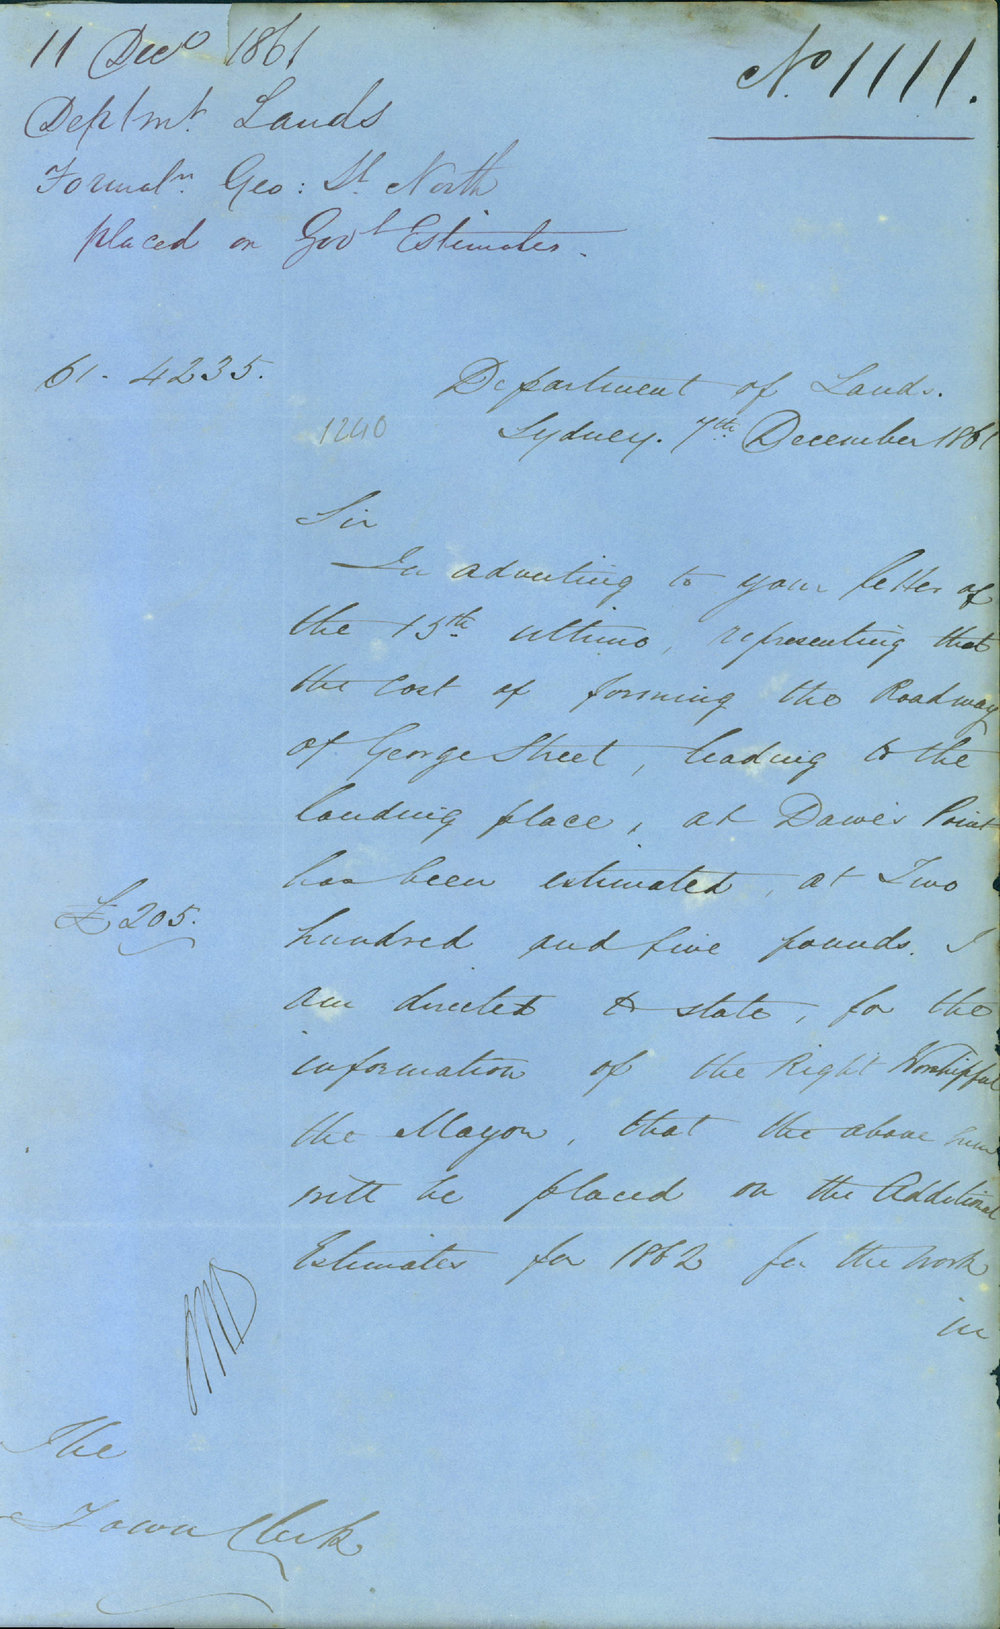 11 Dec<sup>o</sup> 1861
No 1111.
Deptmt. Lands
Formatn. Geo: St. North
placed on Govt Estimates.
61-4235.
Department of Lands.
1240
Sydney. 7th December 1861
Sir
In adverting to your letter of
the 15th ultimo, representing that
the cost of forming the Roadway
of George Street, leading to the
landing place, at Dawe's Point
has been estimated, at Two
£205.
hundred and five pounds. I
am directed to state, for the
information of the Right Worshipful
the Mayor, that the above
will be placed on the Additional
Estimates for 1862 for the work
in
The
Town Clerk